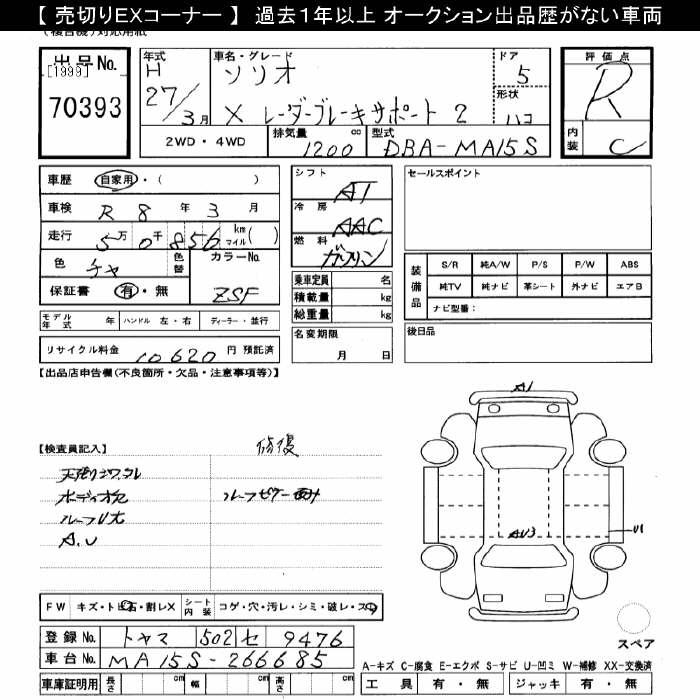 【 売切りEXコーナー 】 過去1年以上 オークション出品歴がない車両
(複合機)対応用紙
出品No. 年式 車名・グレード ドア 評価点
[1999] H ソリオ 5 R
70393 27/3月 X レーダーブレーキサポート 2 形状 ハコ
2WD・4WD 排気量 1200 cc 型式 DBA-MA15S 内装 C
車歴 自家用・( )
車検 R 8 年 3 月
走行 5万 0千 856 km マイル( )
色 チャ 色替 カラーNo. ZSF
保証書 有・無
モデル年式 年 ハンドル 左・右 ディーラー・並行
リサイクル料金 10620 円 預託済
シフト AT
冷房 AAC
燃料 ガソリン
乗車定員 名
積載量 kg
総重量 kg
名変期限 月 日
セールスポイント
装備品 S/R 純A/W P/S P/W ABS
純TV 純ナビ 革シート 外ナビ エアB
ナビ型番:
後日品
【出品店申告欄(不良箇所・欠品・注意事項等)】
【検査員記入】 修復
ルーフ
A.U
A1
AU3
U1
FW キズ・トビ石・割レX シート内装 コゲ・穴・汚レ・シミ・破レ・スレ
登録No. トヤマ 502 セ 9476
車台No. MA15S-266685
車庫証明用 長さ cm 幅 cm 高さ cm
スペア
A-キズ C-腐食 E-エクボ S-サビ U-凹ミ W-補修 XX-交換済
工具 有・無 ジャッキ 有・無